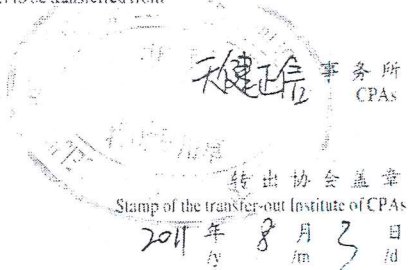 be transferred from
天健正信 事务所
CPAs
转出协会盖章
Stamp of the transfer-out Institute of CPAs
2011 年 8 月 3 日
/y /m /d